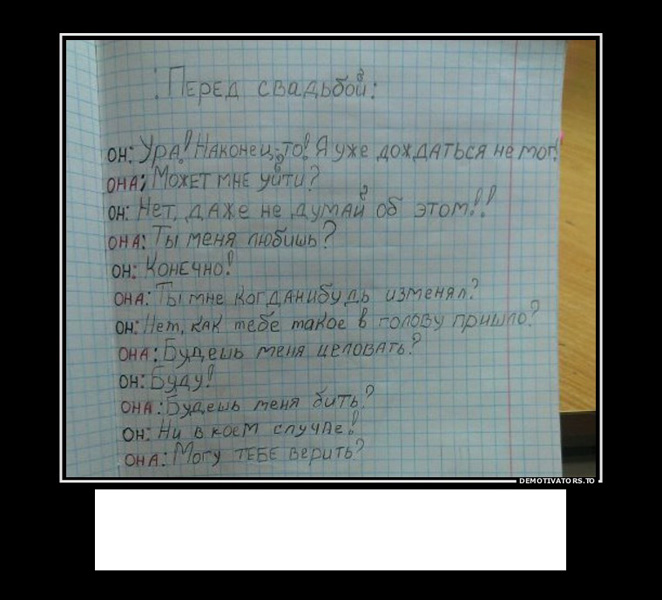 Перед свадьбой:
ОН: Ура! Наконец-то! Я уже дождаться не мог!
ОНА: Может мне уйти?
ОН: Нет, даже не думай об этом!!
ОНА: Ты меня любишь?
ОН: Конечно!
ОНА: Ты мне когданибудь изменял?
ОН: Нет, как тебе такое в голову пришло?
ОНА: Будешь меня целовать?
ОН: Буду!
ОНА: Будешь меня бить?
ОН: Ни в коем случае!
ОНА: Могу ТЕБЕ верить?
DEMOTIVATORS.TO